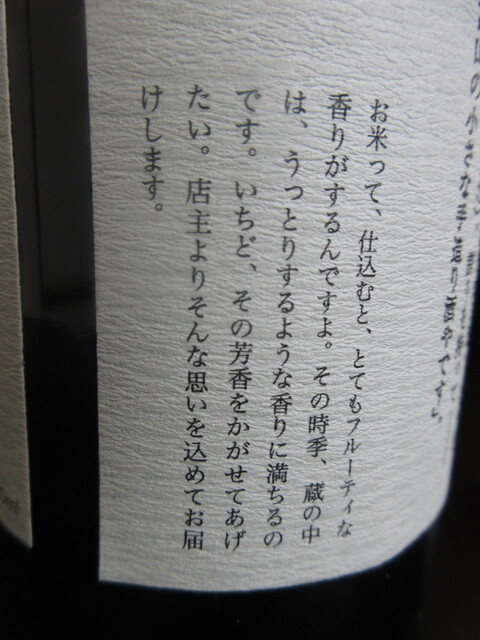 の小さな手造り酒やですら。
お米って、仕込むと、とてもフルーティな
香りがするんですよ。その時季、蔵の中
は、うっとりするような香りに満ちるの
です。いちど、その芳香をかがせてあげ
たい。店主よりそんな思いを込めてお届
けします。